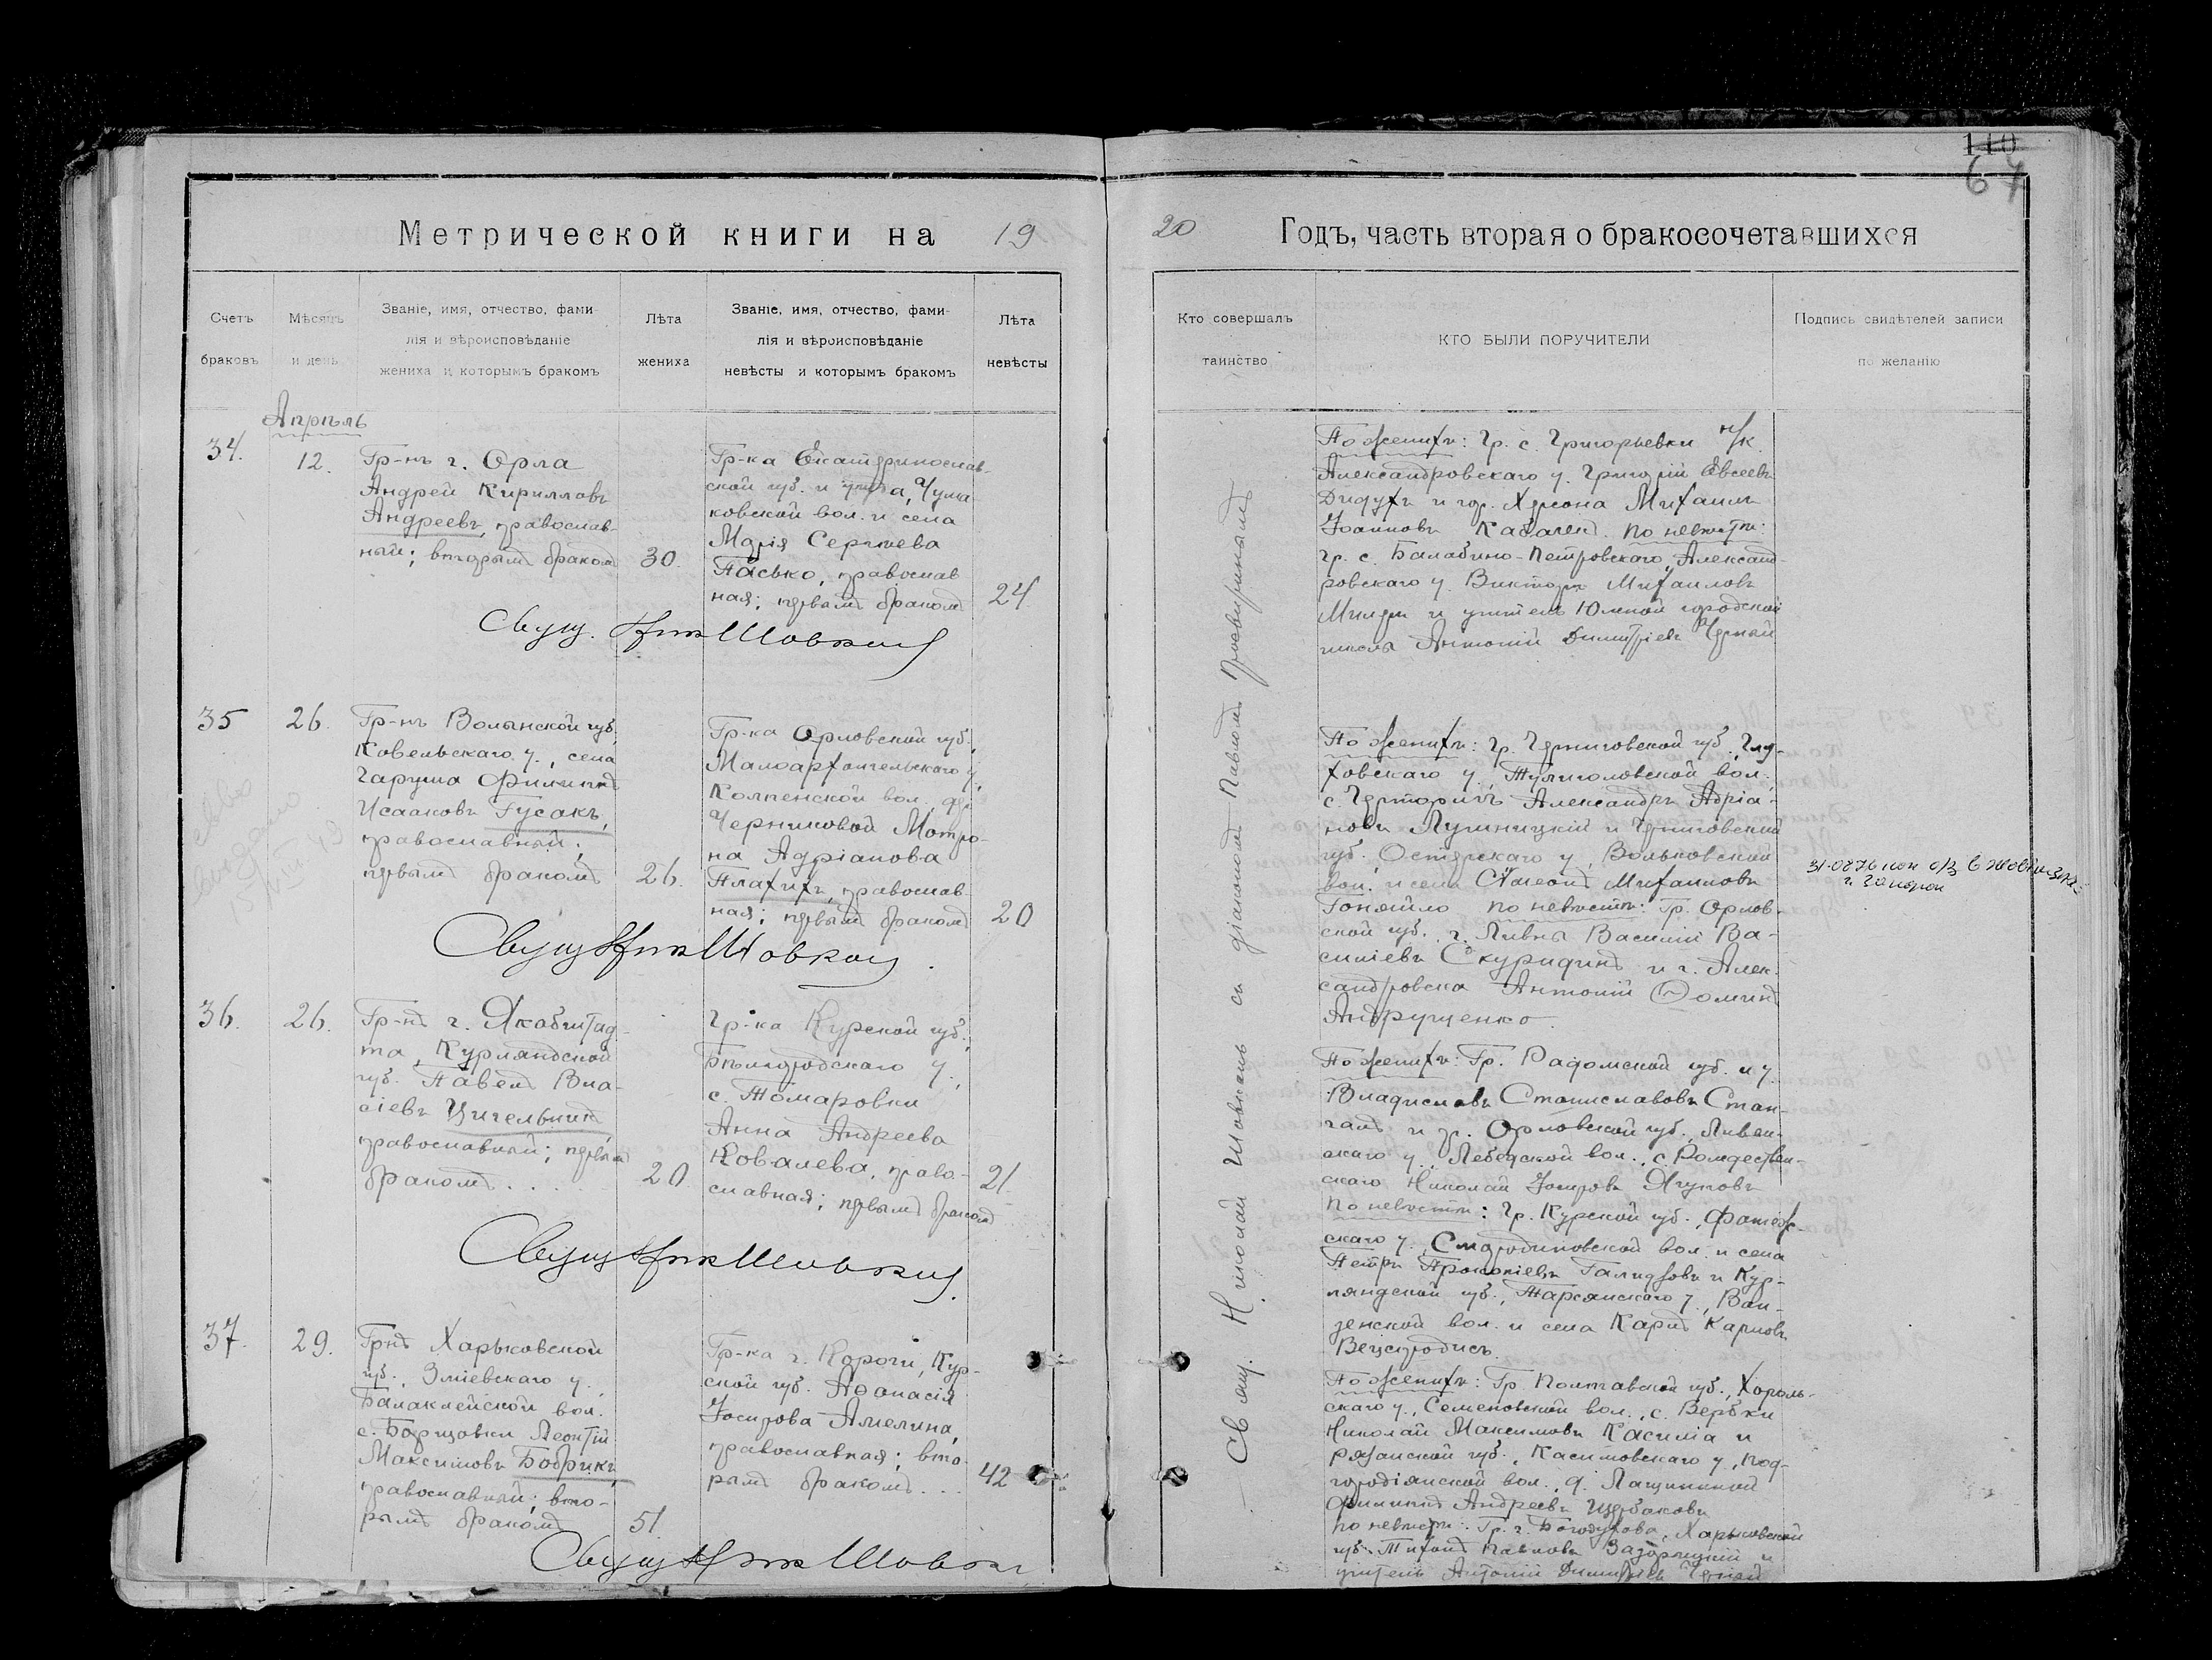 110
67
Метрической книги на 19
20 Годъ, часть вторая о бракосочетавшихся
Счетъ браковъ
Мѣсяцъ и день
Званіе, имя, отчество, фами-
лія и вѣроисповѣданіе
жениха и которымъ бракомъ
Лѣта жениха
Званіе, имя, отчество, фами-
лія и вѣроисповѣданіе
невѣсты и которымъ бракомъ
Лѣта невѣсты
Кто совершалъ таинство
КТО БЫЛИ ПОРУЧИТЕЛИ
Подпись свидѣтелей записи
по желанію
Апрѣль
34.
12.
Гр-нъ г. Орла
Андрей Кирилловъ
Андреевъ, православ-
ный; вторымъ бракомъ
30.
Гр-ка Екатеринослав-
ской губ. и уѣзда, Чума
ковской вол. и села
Марія Сергѣева
Пасько, православ
ная; первымъ бракомъ
24
Свящ. Ник Шовкопл
По женихѣ: Гр. с. Григорьевки н/к
Александровскаго у. Григорій Евсеевъ
Дидухъ и гор. Херсона Михаилъ
Іоанновъ По невѣстѣ:
гр. с. Балабино-Петровскаго, Александ-
ровскаго у. Викторъ Михаиловъ
и учитель городской
школы Антоній Димитріевъ Черный
35
26.
Гр-нъ Волынской губ.
Ковельскаго у., села
Гаруша Филиппъ
Исааковъ Гусакъ,
православный;
первымъ бракомъ
26.
Гр-ка Орловской губ.,
Малоархангельскаго у.
Колпенской вол., дер.
Черниковой Матро-
на Адріанова
Плахихъ, православ-
ная; первымъ бракомъ
20
По женихѣ: гр. Черниговской губ. Глу-
ховскаго у. Тулиголовской вол.
с. Черториги Александръ Адріа-
новъ и Черниговской
губ. Остерскаго у.
вол. и села Симеонъ Михаиловъ
Гоняйло по невѣстѣ: Гр. Орлов-
ской губ. г. Ливны Василій Ва-
силіевъ Скуридинъ и г. Алек-
сандровска Антоній Ѳоминъ
Андрущенко.
36.
26.
Гр-нъ г. Якобштад-
та, Курляндской
губ. Павелъ Вла-
сіевъ Цигельникъ
православный; первым
бракомъ
20
Гр-ка Курской губ.,
Бѣлгородскаго у.,
с. Томаровки
Анна Андреева
Ковалева, право-
славная; первымъ бракомъ
21.
По женихѣ: Гр. Радомской губ. и у.
Владиславъ Станиславовъ Стан-
и гр. Орловской губ., Ливен-
скаго у., вол., с. Рождествен-
скаго Николай Іосифовъ Ягуповъ
По невѣстѣ: Гр. Курской губ., Фатеж-
скаго у., Смородиновской вол. и села
Петръ Прокопіевъ и Кур-
ляндской губ.,
вол. и села Карлъ Карловъ
37.
29.
Грнъ Харьковской
губ., Зміевскаго у.,
Балаклейской вол.
с. Борщовки Леонтій
Максимовъ Бобрикъ,
православный; вто-
рымъ бракомъ
51.
Гр-ка г. Корочи, Кур-
ской губ. Аѳанасія
Іосифова Амелина,
православная; вто-
рымъ бракомъ...
42
По женихѣ: Гр. Полтавской губ., Хороль-
скаго у., Семеновской вол., с. Вербки
Николай Максимовъ и
Рязанской губ., Касимовскаго у.,
вол., д.
Филиппъ Андреевъ Щербаковъ
по невѣстѣ: Гр. г. Богодухова, Харьковской
губ. Тихонъ Павловъ и
учитель Антоній Димитріевъ Черный
Свящ. Николай Шовкопл съ діакономъ Павломъ